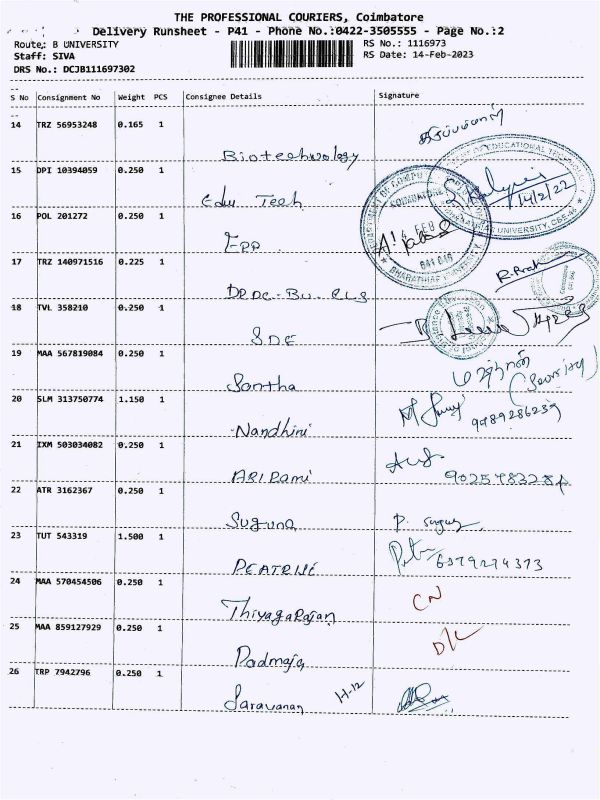 THE PROFESSIONAL COURIERS, Coimbatore
Delivery Runsheet - P41 - Phone No.:0422-3505555 - Page No.:2
Route: B UNIVERSITY
RS No.: 1116973
Staff: SIVA
RS Date: 14-Feb-2023
DRS No.: DCJB111697302
S No Consignment No Weight PCS Consignee Details Signature
14 TRZ 56953248 0.165 1
Biotechnology
15 DPI 10394059 0.250 1
Edu Tech
14/2/22
16 POL 201272 0.250 1
14 FEB
641 046
BHARATHIAR UNIVERSITY
UNIVERSITY, CBE-46
17 TRZ 140971516 0.225 1
DRDC-BU-CLS
18 TVL 358210 0.250 1
SDE
19 MAA 567819084 0.250 1
Santha
20 SLM 313750774 1.150 1
Nandhini
9489286239
21 IXM 503034082 0.250 1
ABIRami
22 ATR 3162367 0.250 1
Suguna
P. Suguna
23 TUT 543319 1.500 1
6379274373
24 MAA 570454506 0.250 1
ThiyagaRajan
CN
25 MAA 859127929 0.250 1
Padmaja
D/L
26 TRP 7942796 0.250 1
Saravanan H-12